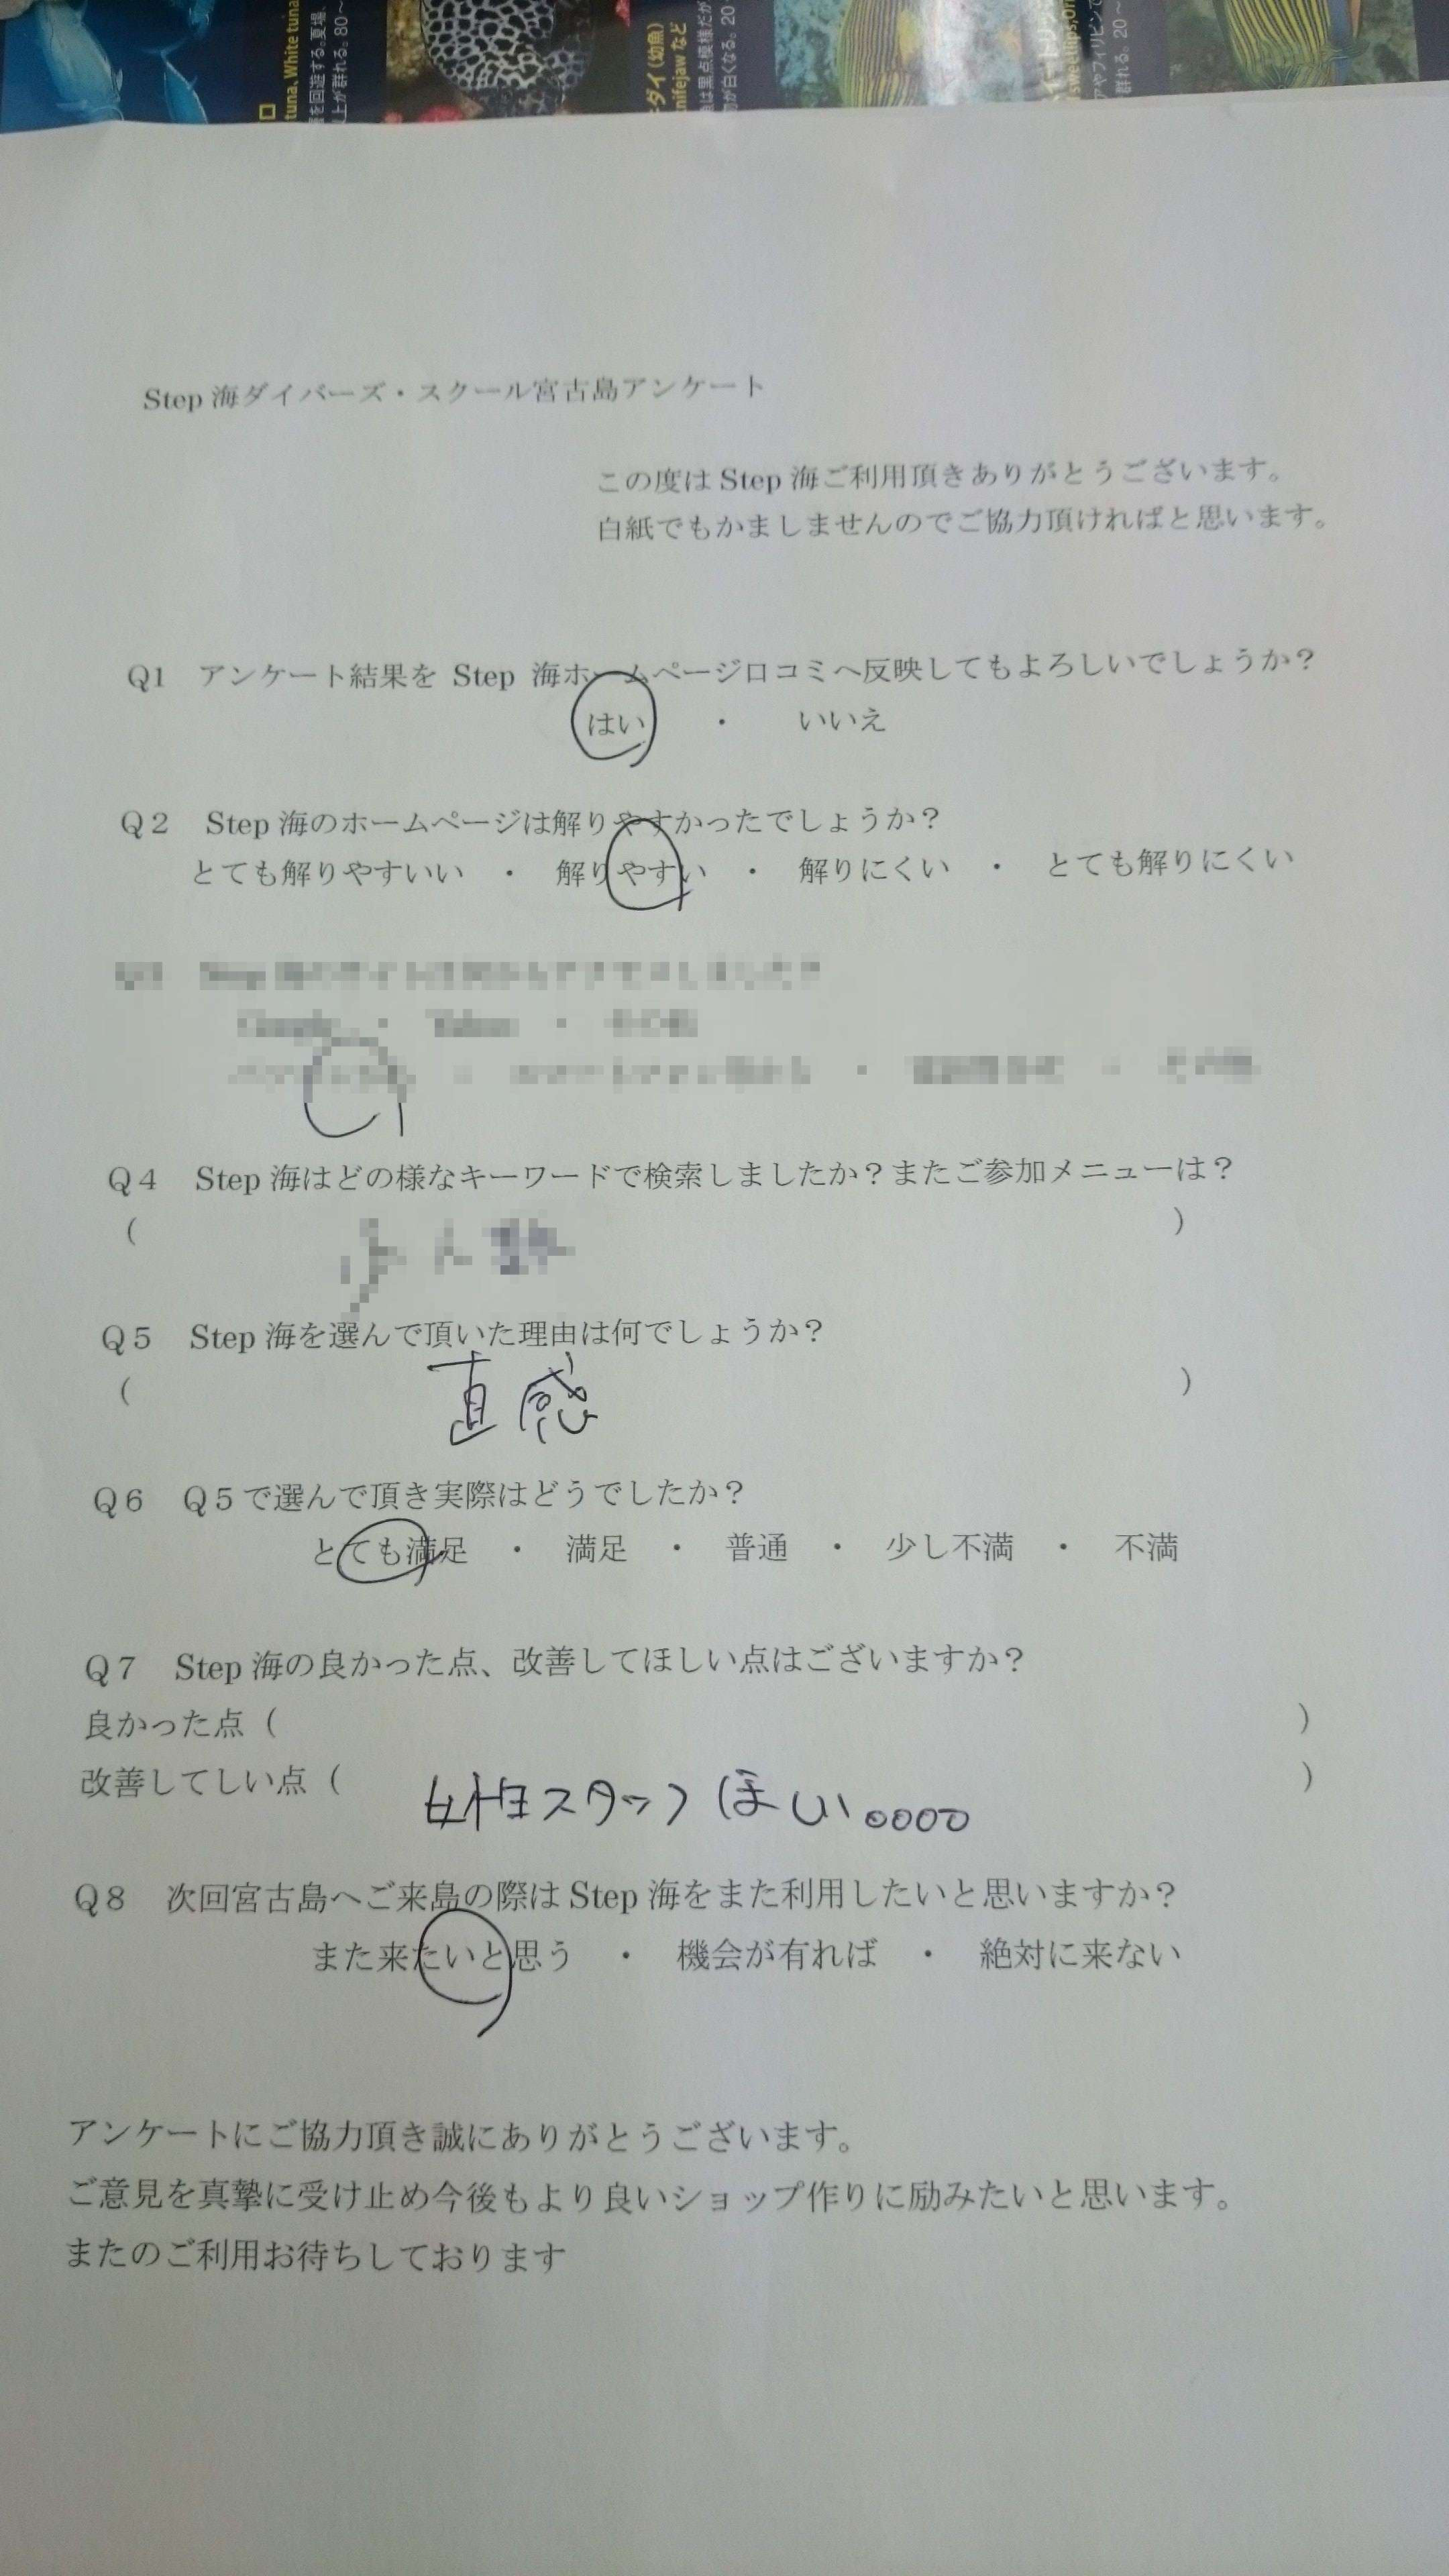 ロ
tuna, White tuna
層を回遊する。夏場、
以上が群れる。80～
ダイ（幼魚）
knifejaw など
は黒点模様だが
が白くなる。20
sweetlips, Or
アやフィリピンで
群れる。20～
Step 海ダイバーズ・スクール宮古島アンケート
この度は Step 海ご利用頂きありがとうございます。
白紙でもかましませんのでご協力頂ければと思います。
Q1 アンケート結果を Step 海ホームページ口コミへ反映してもよろしいでしょうか？
はい ・ いいえ
Q２ Step 海のホームページは解りやすかったでしょうか？
とても解りやすいい ・ 解りやすい ・ 解りにくい ・ とても解りにくい
Q４ Step 海はどの様なキーワードで検索しましたか？またご参加メニューは？
（ ）
Q５ Step 海を選んで頂いた理由は何でしょうか？
（ 直感 ）
Q６ Q５で選んで頂き実際はどうでしたか？
とても満足 ・ 満足 ・ 普通 ・ 少し不満 ・ 不満
Q７ Step 海の良かった点、改善してほしい点はございますか？
良かった点（ ）
改善してしい点（ 女性スタッフほしい。。。。 ）
Q８ 次回宮古島へご来島の際は Step 海をまた利用したいと思いますか？
また来たいと思う ・ 機会が有れば ・ 絶対に来ない
アンケートにご協力頂き誠にありがとうございます。
ご意見を真摯に受け止め今後もより良いショップ作りに励みたいと思います。
またのご利用お待ちしております